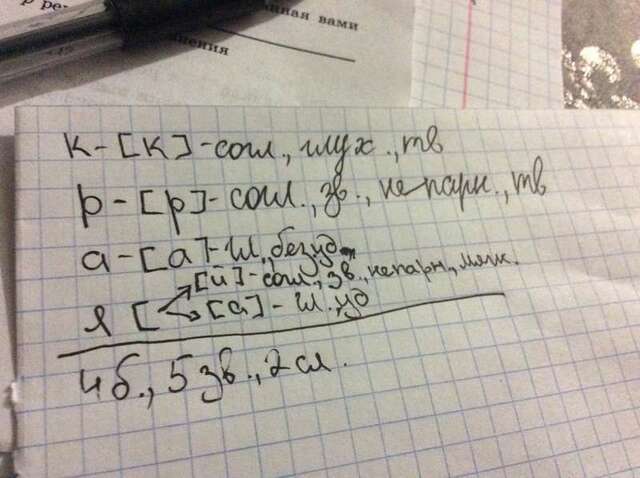 нная вами
к - [к] - согл., глух., тв
р - [р] - согл., зв., непарн., тв
а - [а] - гл., безуд
[й] - согл., зв., непарн., мягк.
я [
[а] - гл. уд
4 б., 5 зв., 2 сл.